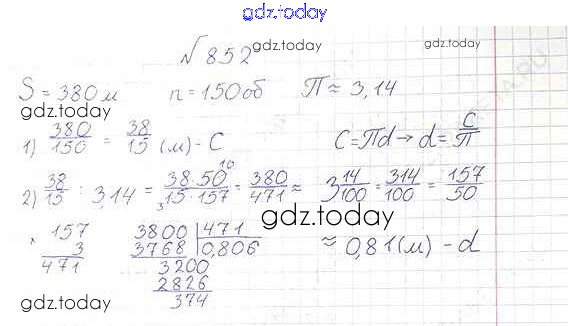 gdz.today
№ 852 gdz.today gdz.today
S = 380 м n = 150 об П ≈ 3,14
gdz.today
1) 380/150 = 38/15 (м) - C C = Пd → d = C/П
2) 38/15 : 3,14 = 38·50 10/3 15·157 = 380/471 ≈ 3 14/100 = 314/100 = 157/50
gdz.today
× 157 3800 | 471 ≈ 0,81 (м) - d
3 3768 0,806
471 3200
gdz.today 2826 gdz.today
374
gdz.today